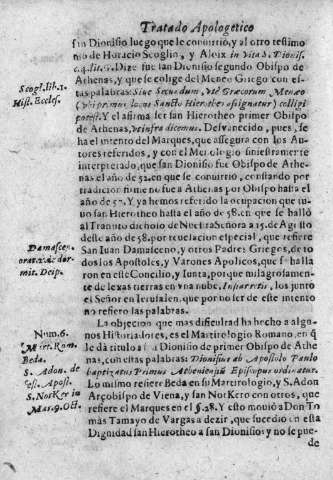 Tratado Apologetico
san Dionisio luego que le conuirtiò, y al otro testimo
nio de Horacio Scoglio, y Aloix in vita S. Dionis.
c. 4. lit. G. Dize fue san Dionisio segundo Obispo de
Athenas, y que se colige del Meneo Griego con es-
tas palabras: Siue Secundum, vtè Græcorum Meneo
(vbi primus locus Sancto Hierotheo assignatur) colligi
potest. Y el afirma ser san Hierotheo primer Obispo
de Athenas, vt infra dicemus. Desvanecido, pues, se
ha el intento del Marques, que assegura con los Au-
tores referidos, y con el Metologio siniestramente
interpretado, que san Dionisio fue Obispo de Athe-
nas el año de 52. en que se conuirtiò, constando por
tradicion no me no fue a Athenas por Obispo hasta el
año de 57. Y ya hemos referido la ocupacion que tu-
uo san Hierotheo hasta el año de 58. en que se hallò
al Transito dichoso de Nuestra Señora a 15. de Agosto
deste año de 58. por reuelacion especial, que refiere
San Iuan Damasceno, y otros Padres Griegos, de to
dos los Apostoles, y Varones Apolicos, que se halla
ron en este Concilio, y Iunta, porque milagrosamen-
te de lexas tierras en vna nube. Insurretis, los juntò
el Señor en Ierusalen, que por no ser de este intento
no refiero las palabras.
La objecion que mas dificultad ha hecho a algu-
nos Historiadores, es el Martirologio Romano, en q̃
le dà titulo a san Dionisio de primer Obispo de Athe
nas, con estas palabras: Dionisius ab Apostolo Paulo
baptizatus Primus Atheniensiũ Episcopus ordinatur.
Lo mismo refiere Beda en su Martirologio, y S. Adon
Arçobispo de Viena, y san NorKero con otros, que
refiere el Marques en el §. 28. Y esto mouiò a Don To
màs Tamayo de Vargas a dezir, que sucediò en esta
Dignidad san Hierotheo a san Dionisio: y no se pue-
de
Scogl. lib. 1.
Hist. Eccles.
Damascen.
orat. 2. de dor-
mit. Deip.
Num. 6.
Mart. Rom.
Beda.
S. Adon. de
fest. Apost.
S. NorKer in
Mar. 9. Oct.